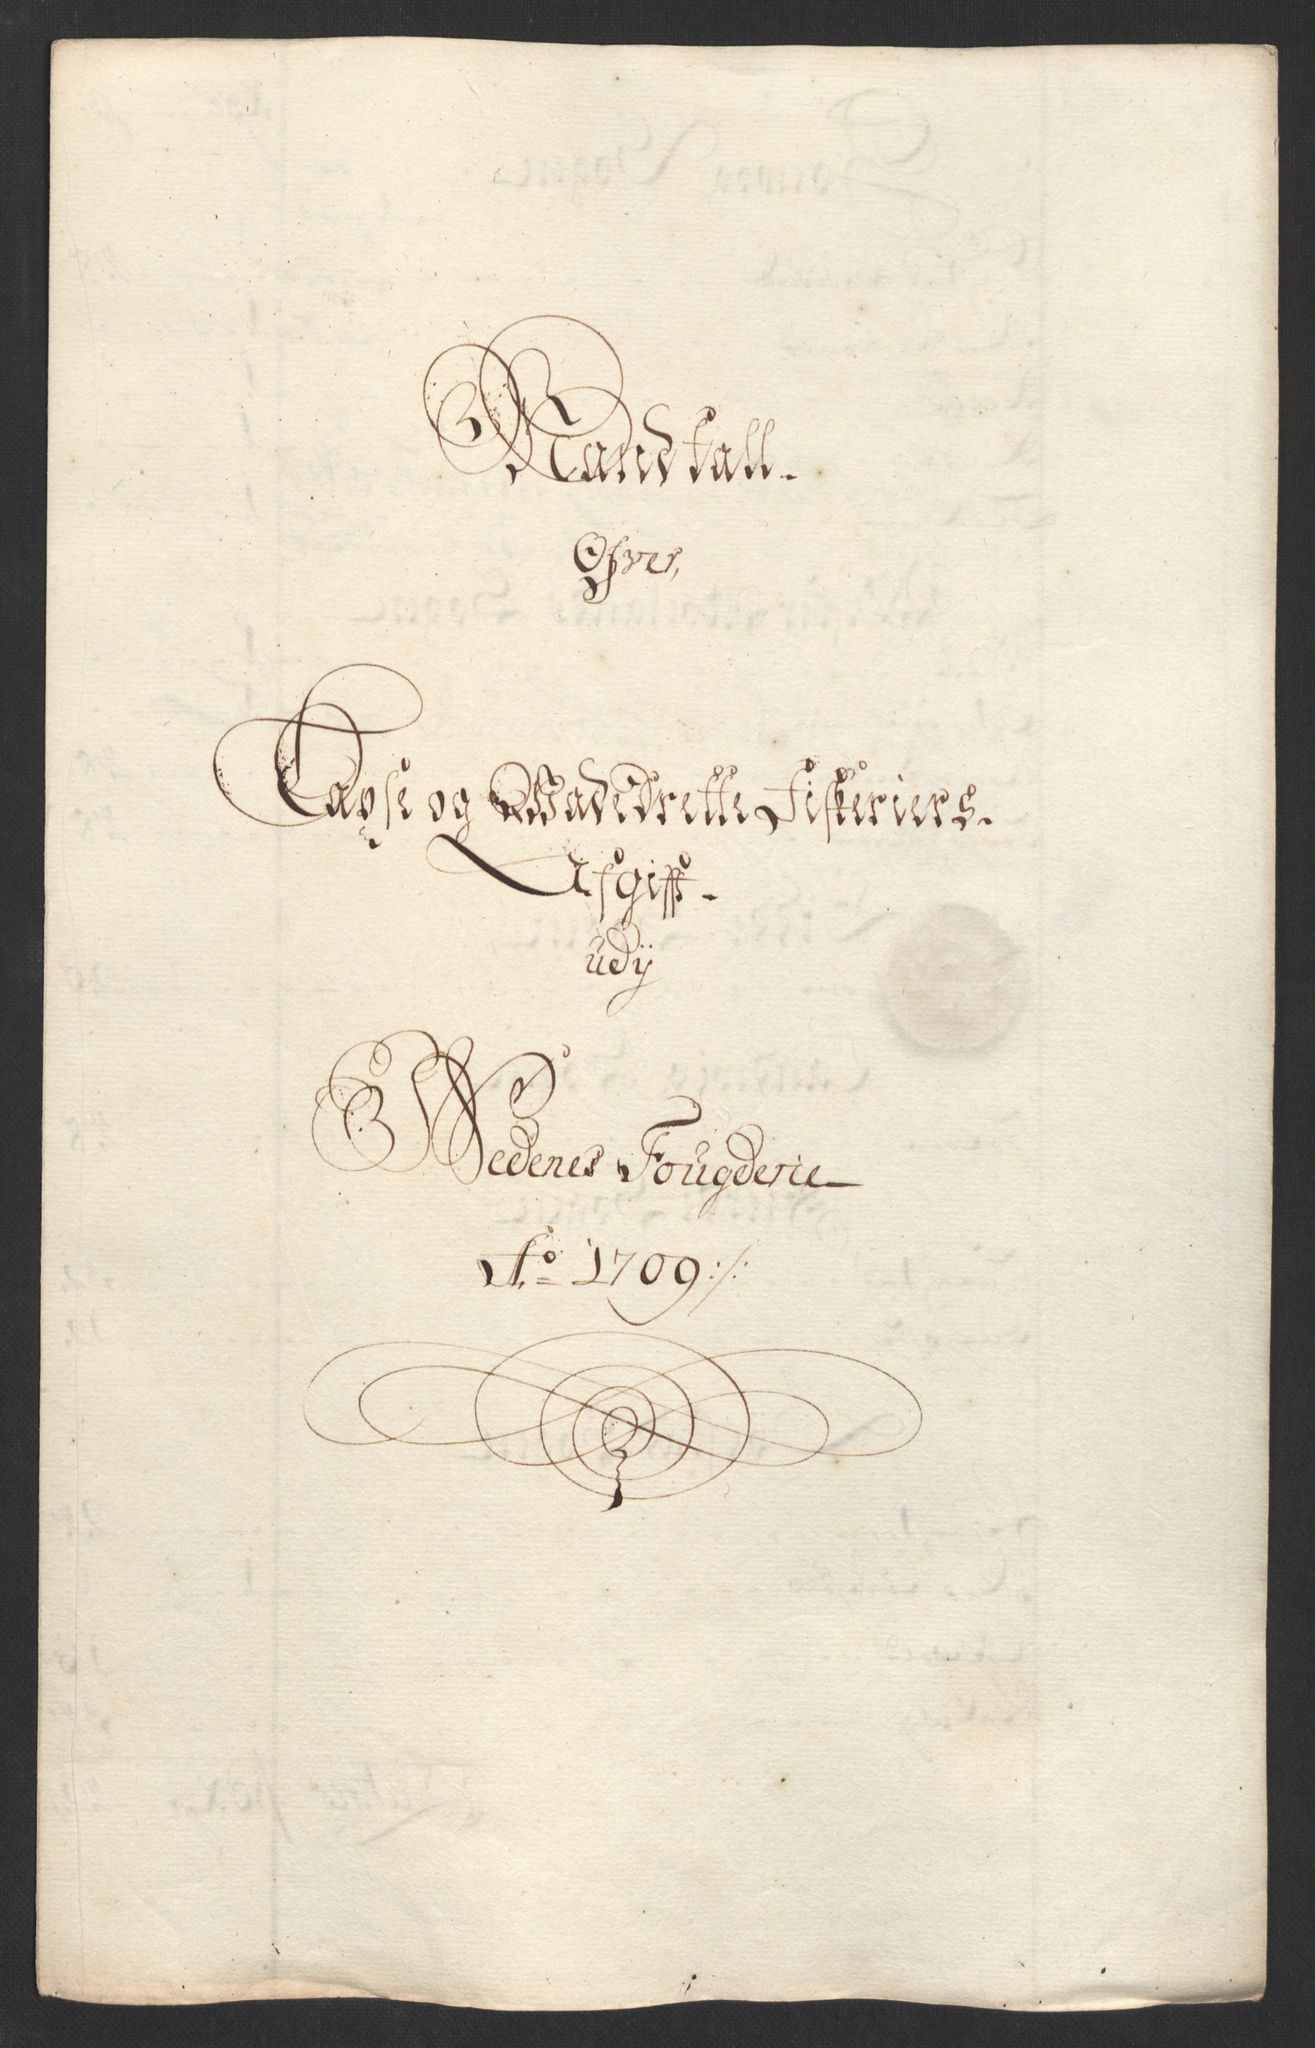 Mandtall.
Ofver,
Laxse og Wadedrette Fiskeriers.
Afgifft.
udij
Nedenes Fougderie
Ao 1709:/: